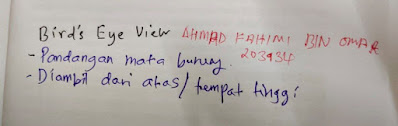 Bird's Eye View AHMAD FAHIMI BIN OMAR
203934
- Pandangan mata burung.
- Diambil dari atas/tempat tinggi